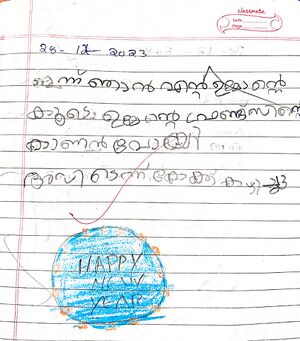 classmate
Date
Page
28-12-2023
ഇന്ന് ഞാൻ എന്റെ ഉമ്മാന്റെ
കൂടെ ഉമ്മന്റെ ഫ്രണ്ട്സിന്റെ
കാണൻ പോയി
HAPPY
NEW
YEAR